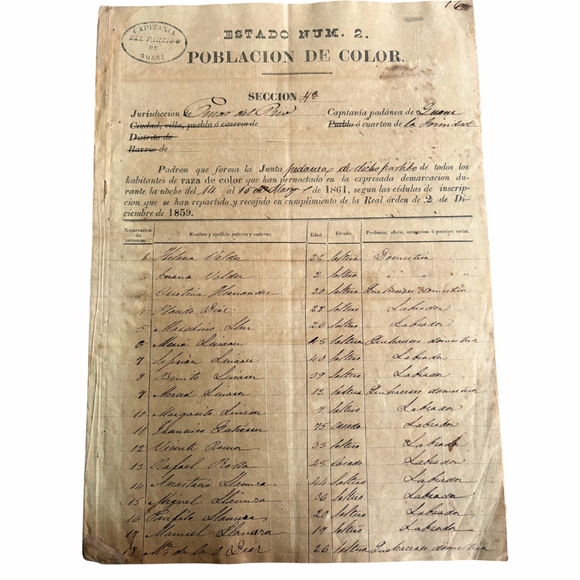 16
CAPITANIA
DEL PARTIDO
DE
GUANE
ESTADO NUM. 2.
POBLACION DE COLOR.
SECCION 4ª
Jurisdiccion de Pinar del Rio Capitanía padánea de Guane
Ciudad, villa, pueblo ó caserío de Pueblo ó cuarton de la Trinidad
Distrito de
Barrio de
Padron que forma la Junta pedanea de dicho partido de todos los
habitantes de raza de color que han pernoctado en la espresada demarcacion du-
rante la noche del 14 al 15 de Marzo de 1861, segun las cédulas de inscrip-
cion que se han repartido y recojido en cumplimiento de la Real órden de 2 de Di-
ciembre de 1859.
Numeracion de Nombre y apellido paterno y materno. Edad. Estado. Profesion, oficio, ocupacion ó posicion social.
1 Helena Valdes 26 Soltera Domestica
2 Juana Valdes 2 Soltera " "
Cristina Hernandez 20 Soltera Quehaceres domestica
Diaz 27 Soltero Labrador
5 Marcelino 26 Soltero Labrador
6 Maria Linares 45 Soltera Quehaceres domestica
7 Ciprian Linares 40 Soltero Labrador
8 Benito Linares 39 Soltero Labrador
9 Linares 12 Soltera Quehaceres domestica
10 Margarito Linares 7 Soltero Labrador
11 Francisco Gutierrez 75 Casado Labrador
12 Vicente Ramos 35 Soltero Labrador
13 Rafael 45 Casado Labrador
14 Anastacio 44 Soltero Labrador
15 Miguel 36 Soltero Labrador
16 Panfilo 20 Soltero Labrador
17 Manuel 19 Soltero Labrador
18 Mª de la O Diaz 26 Soltera Quehaceres domestica